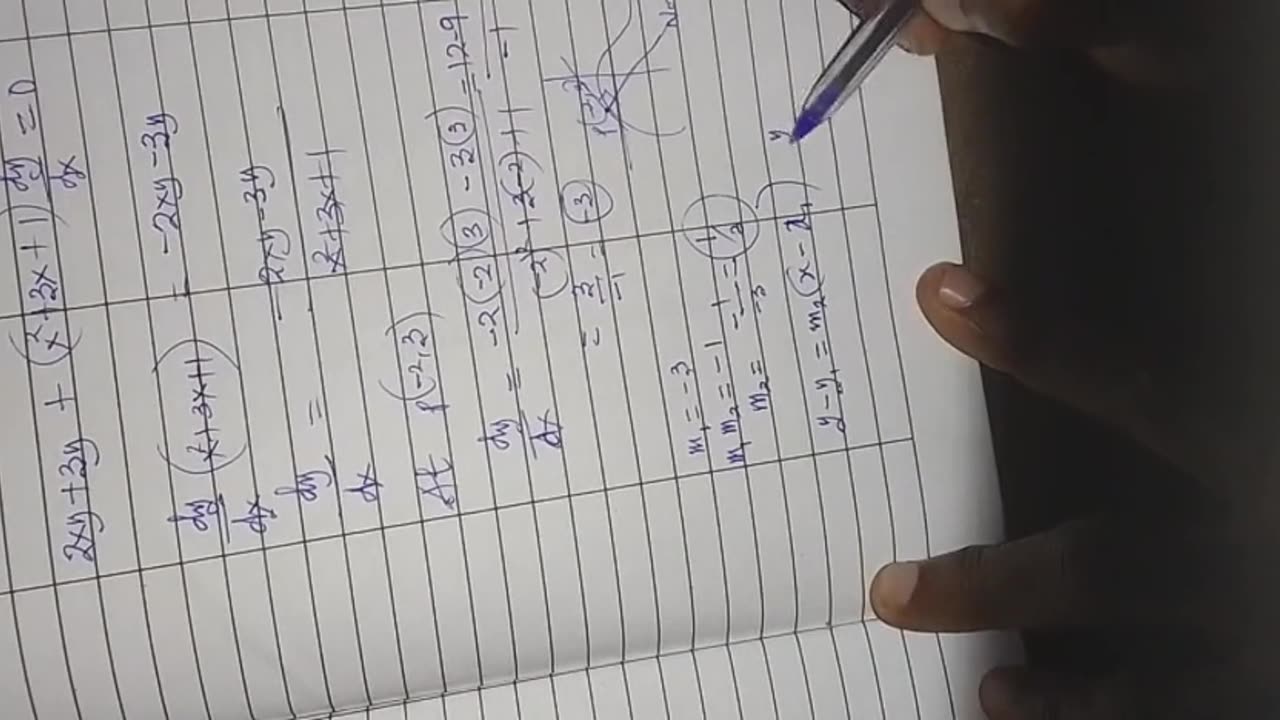 2xy+3y + (x²+3x+1) dy/dx = 0
dy/dx (x²+3x+1) = -2xy-3y
dy/dx = -2xy-3y / x²+3x+1
At P(-2,3)
dy/dx = -2(-2)(3) - 3(3) / (-2)²+3(-2)+1 = 12-9 / -1
= 3/-1 = -3
P(-2,3)
m₁ = -3
m₁m₂ = -1
m₂ = -1/-3 = 1/3
y-y₁ = m₂(x-x₁)
y